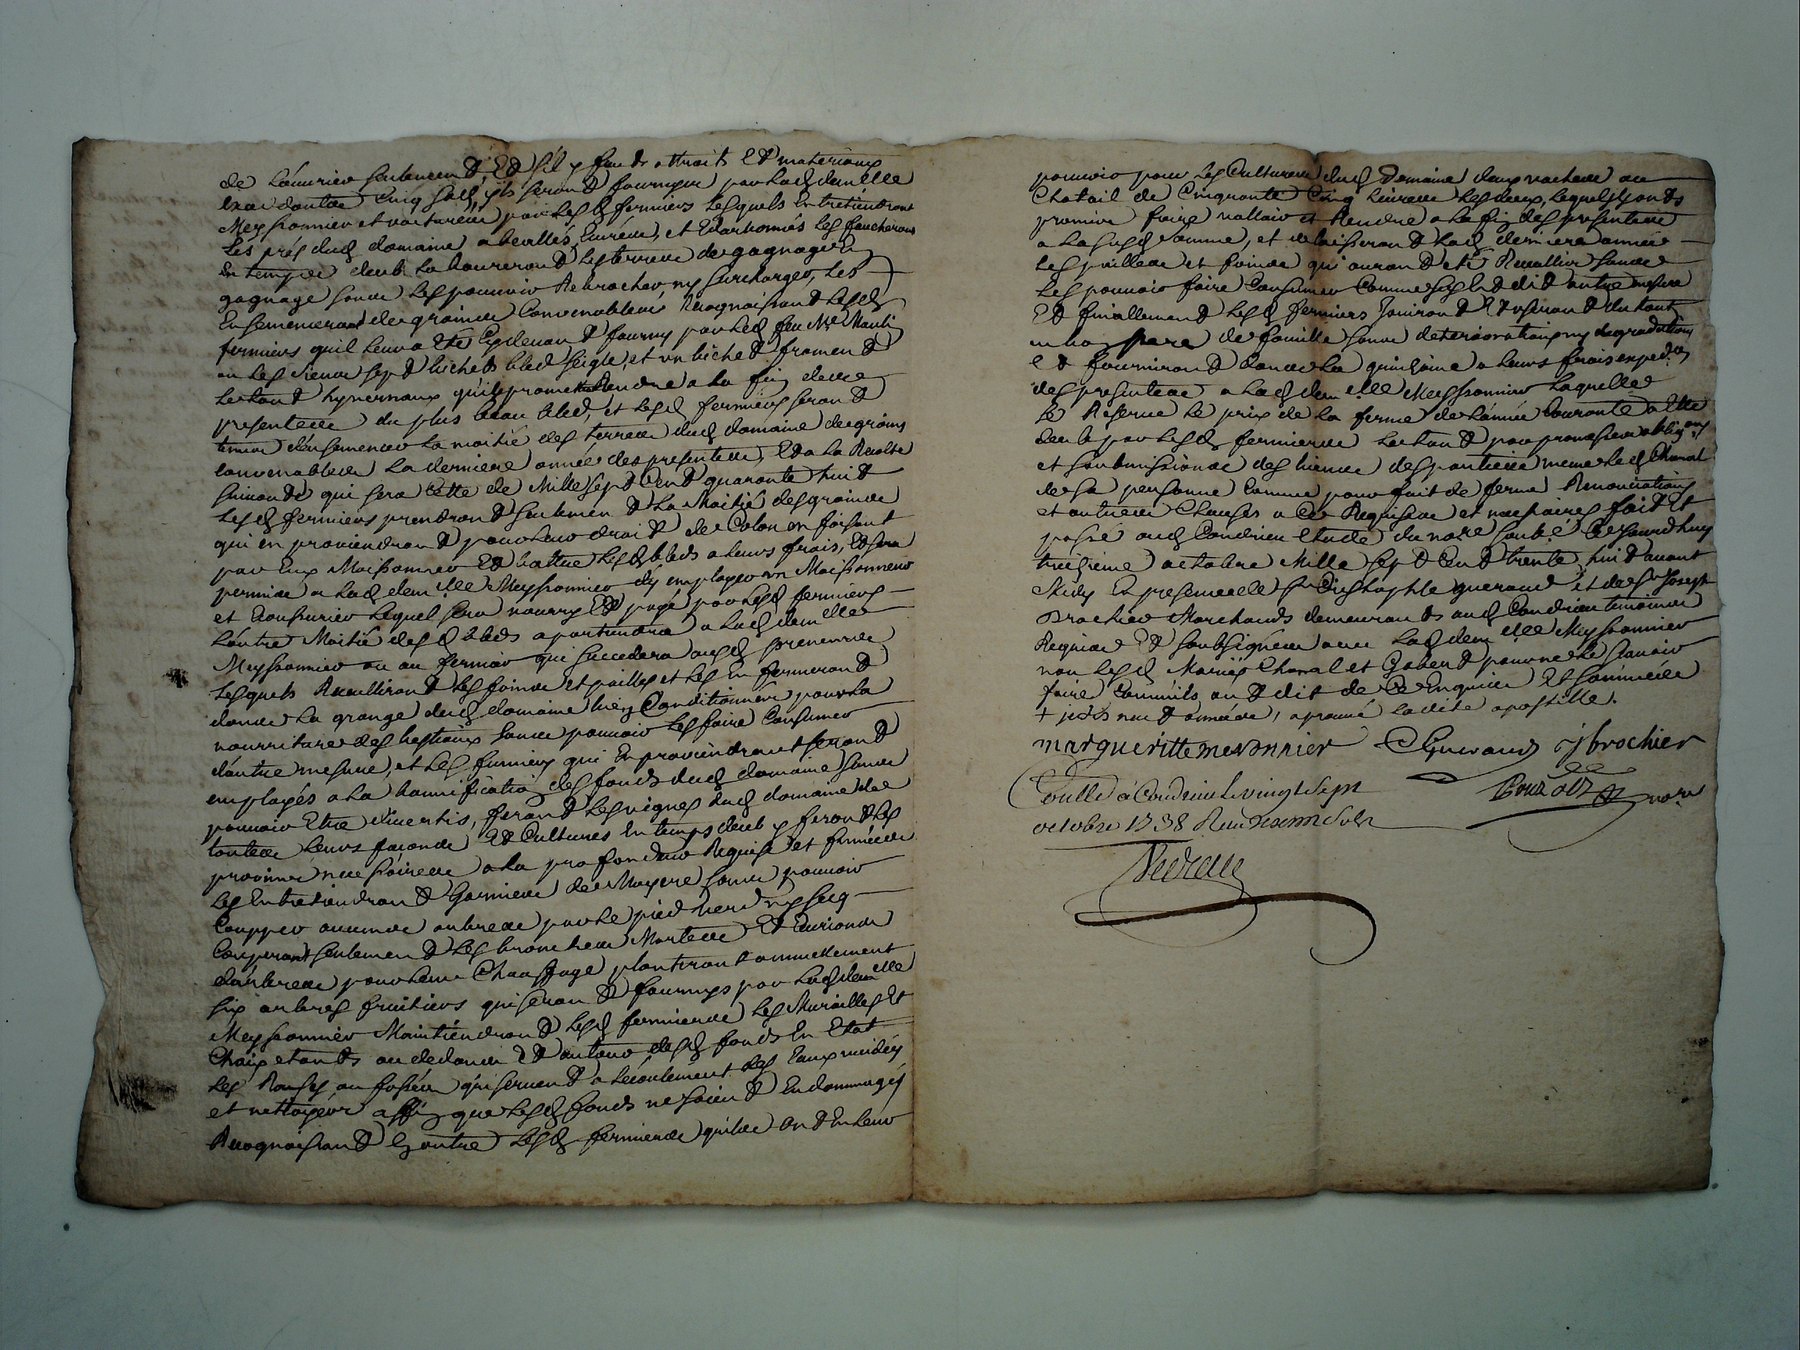 de Louvrier seulement Et s'il y faut attraits Et materiaux
exedantre Cinq sols, ils seront fournys par lad. dem.elle
Meyssonnier et voiturés par lesd. fermiers lesquels Entretiendront
les prés dud. domaine abevillés, Cures, et Edarbonnés les faucheront
En temps deub Laboureront les terres de gagnage En
gagnage sans les pouvoir Rebrocher ny surcharger, les
Ensemenceront de grains Convenables Recognoissant lesd.
fermiers quil leur a eté Cydevant fourny par led. feu Mr
ou les siens sept bichets bled seigle, et un bichet froment
Le tout hyvernaux qu'ils promettent Rendre a la fin des
presentes du plus beau bled, et lesd. fermiers seront
tenus d'ensemencer la moitié des terres dud. domaine de grains
convenables la derniere année des presentes, Et a la Recolte
suivante qui sera Celle de Mille sept Cent quarante huit
Lesd. fermiers prendront seulement la Moitié des grains
qui en proviendront pour leur droit de Colon en faisant
par Eux Moissonner Et battre lesd. bleds a leurs frais, Et sera
permis a lad. dem.elle Meyssonnier d'y employer un Moissonneur
et Ecoussurier lequel sera nourry Et payé par lesd. fermiers
Lautre Moitié desd. bleds apartiendra a lad. demlle
Meyssonnier ou au fermier qui succedera auxd. preneurs
Lesquels Recuilliront les foins et pailles et les Enfermeront
dans la grange dud. domaine bien Conditionnés pour la
nourriture des bestiaux sans pouvoir les faire Consumer
d'autre mesure, et les fumiers qui En proviendront seront
employés a la bonnification des fonds dud. domaine sans
pouvoir Etre divertis, feront les vignes dud. domaine de
toutes leurs façons Et Cultures En temps deub y feront les
provins necessaires a la profondeur Requise et fumées
les Entretiendront Garnies de Mayere sans pouvoir
Coupper aucuns arbres par le pied verd ny secq
Couperont seulement les branches Mortes Et Emonde
d'arbres pour leur Chauffage planteront annuellement
six arbres fruitiers qui seront fournys par lad. demelle
Meyssonnier Maintiendront lesd. fermiers les Murailles Et
Chaix etants au dedans Et autour desd. fonds En Etat
les Rases ou fossés qui servent a lecoulement des Eaux vuidés
et nettoyés affin que lesd. fonds ne soient Endommagés
Recognoissant En outre lesd. fermiers quils ont En leur
pouvoir pour les Cultures dud. Domaine deux vaches au
Chatail de Cinquante Cinq Livres les deux, lequel
premier faire valloir et Rendre a la fin des presentes
a la susd. somme, et delaisseront lad. derniere année
les pailles et foins qui auront eté Recullies sans
les pouvoir faire Consumer Comme susdit dit autre mesure
Et finallement lesd. fermiers Jouiront Et useront du tout
en bon pere de famille sans deteriorations ny degradations
et fourniront dans la quinzaine a leurs frais exped.on
des presentes a lad. dem.elle Meyssonnier Laquelle
se Reserve le prix de la ferme de l'année Courante a Elle
deub par lesd. fermiers le tout par promesses obligaons
et soubmissions des biens des parties meme led. Chanal
de sa personne Comme pour fait de ferme Renonciations
et autres Clauses a Ce Requises et necessaires fait Et
passé aud. Condrieu etude du no.re soub.né Cejourdhuy
treizieme octobre Mille sept Cent trente huit avant
Midy En presence de Sr Christophle Gueraud et de Sr Joseph
Brochier Marchands demeurants aud. Condrieu temoins
Requis Et soubsignés avec lad. dem.elle Meyssonnier
non lesd. Mariés Chanal et Gabert pour ne le scavoir
faire Commils ont dit de Ce Enquis Et sommés
+ aprouvé ladite apostille.
margueritte mesonnier CGueraud jbrochier
Conllé à Condrieu le vingt sept
octobre 1738 Reçu
nore